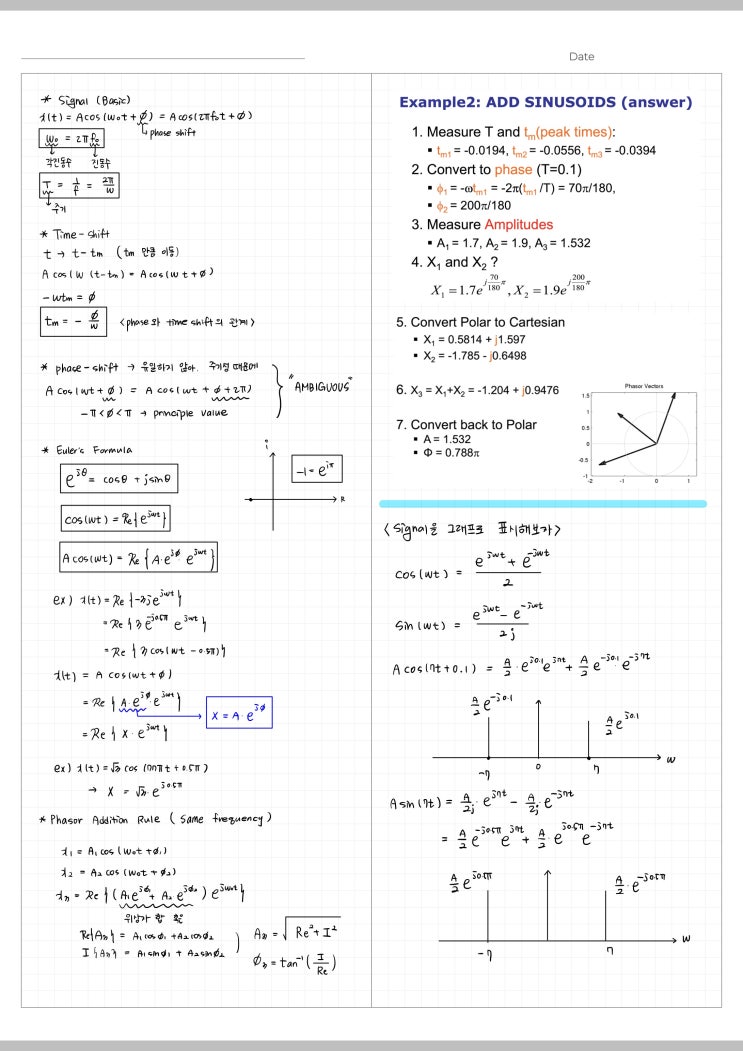 Date
* Signal (Basic)
x(t) = A cos(ω₀t + ϕ) = A cos(2πf₀t + ϕ)
phase shift
ω₀ = 2πf₀
각진동수 진동수
T = 1/f = 2π/ω
주기
* Time-shift
t → t-tm (tm 만큼 이동)
A cos(ω(t-tm)) = A cos(ωt + ϕ)
-ωtm = ϕ
tm = - ϕ/ω <phase와 time shift의 관계>
* phase-shift → 유일하지 않아. 주기성 때문에
A cos(ωt + ϕ) = A cos(ωt + ϕ + 2π)
"AMBIGUOUS"
-π < ϕ < π → principle value
* Euler's Formula
e^{jθ} = cosθ + jsinθ
i
-1 = e^{iπ}
R
cos(ωt) = Re{e^{jωt}}
A cos(ωt) = Re{A·e^{jϕ} e^{jωt}}
ex) x(t) = Re{-3j e^{jωt}}
= Re{3 e^{-j0.5π} e^{jωt}}
= Re{3 cos(ωt - 0.5π)}
x(t) = A cos(ωt + ϕ)
= Re{A·e^{jϕ}·e^{jωt}}
X = A·e^{jϕ}
= Re{X·e^{jωt}}
ex) x(t) = √3 cos(77πt + 0.5π)
→ X = √3·e^{j0.5π}
* Phasor Addition Rule (same frequency)
x₁ = A₁ cos(ω₀t + ϕ₁)
x₂ = A₂ cos(ω₀t + ϕ₂)
x₃ = Re{(A₁e^{jϕ₁} + A₂e^{jϕ₂}) e^{jω₀t}}
Re{A₃} = A₁cosϕ₁ + A₂cosϕ₂
I{A₃} = A₁sinϕ₁ + A₂sinϕ₂
A₃ = √(Re² + I²)
ϕ₃ = tan⁻¹(I/Re)
Example2: ADD SINUSOIDS (answer)
1. Measure T and tm(peak times):
▪ tm1 = -0.0194, tm2 = -0.0556, tm3 = -0.0394
2. Convert to phase (T=0.1)
▪ ϕ₁ = -ωtm1 = -2π(tm1/T) = 70π/180,
▪ ϕ₂ = 200π/180
3. Measure Amplitudes
▪ A₁ = 1.7, A₂ = 1.9, A₃ = 1.532
4. X₁ and X₂ ?
X₁ = 1.7e^{j(70/180)π}, X₂ = 1.9e^{j(200/180)π}
5. Convert Polar to Cartesian
▪ X₁ = 0.5814 + j1.597
▪ X₂ = -1.785 - j0.6498
6. X₃ = X₁+X₂ = -1.204 + j0.9476
7. Convert back to Polar
▪ A = 1.532
▪ Φ = 0.788π
Phasor Vectors
1.5
1
0.5
0
-0.5
-2 -1 0 1
<Signal을 그래프로 표시해보자>
cos(ωt) = (e^{jωt} + e^{-jωt})/2
sin(ωt) = (e^{jωt} - e^{-jωt})/2j
A cos(7t+0.1) = A/2·e^{j0.1}e^{j7t} + A/2 e^{-j0.1}·e^{-j7t}
A/2 e^{-j0.1}
A/2 e^{j0.1}
-7 0 7 ω
A sin(7t) = A/2j·e^{j7t} - A/2j·e^{-j7t}
= A/2 e^{-j0.5π} e^{j7t} + A/2·e^{j0.5π} e^{-j7t}
A/2 e^{j0.5π}
A/2·e^{-j0.5π}
-7 7 ω